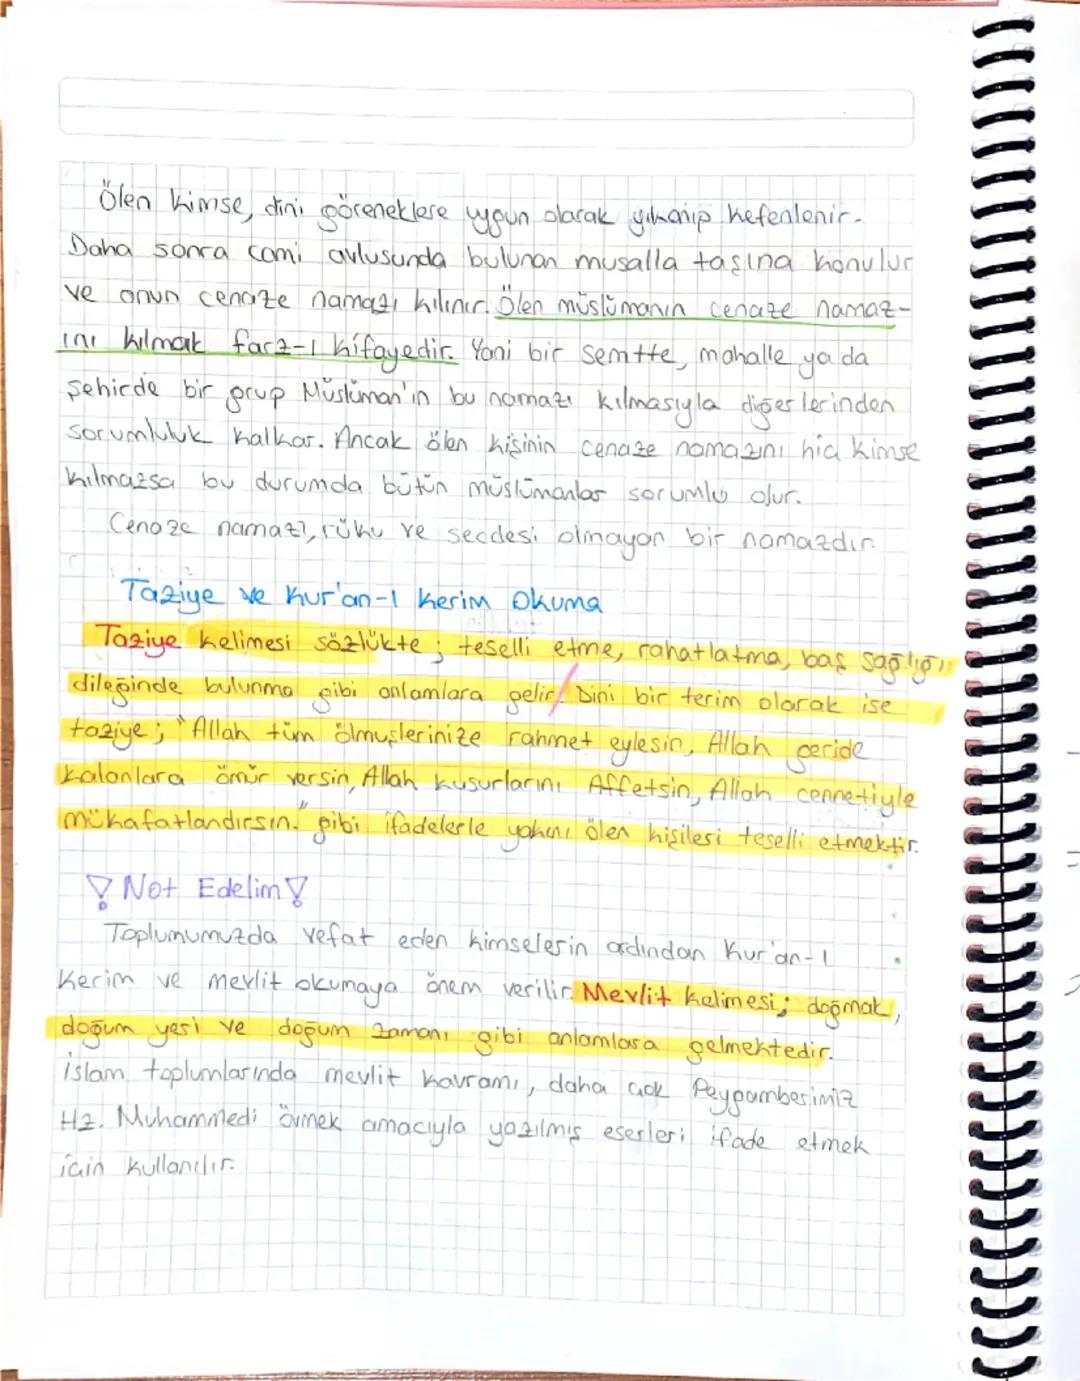 Ölen kimse, dini göreneklere uygun olarak yıkanıp kefenlenir.
Daha sonra cami avlusunda bulunan musalla taşına konulur
ve onun cenaze namazı kılınır. Ölen müslümanın cenaze namaz-
ını kılmak farz-ı kifayedir. Yani bir semtte, mahalle ya da
şehirde bir grup Müslüman'ın bu namazı kılmasıyla diğerlerinden
sorumluluk kalkar. Ancak ölen kişinin cenaze namazını hiç kimse
kılmazsa bu durumda bütün müslümanlar sorumlu olur.
Cenaze namazı, rükû ve secdesi olmayan bir namazdır.
Taziye ve Kur'an-ı Kerim Okuma
Taziye kelimesi sözlükte; teselli etme, rahatlatma, baş sağlığı
dileğinde bulunma gibi anlamlara gelir/ Dini bir terim olarak ise
taziye; "Allah tüm ölmüşlerinize rahmet eylesin, Allah geride
kalanlara ömür versin, Allah kusurlarını Affetsin, Allah cennetiyle
mükafatlandırsın." gibi ifadelerle yakını ölen kişileri teselli etmektir.
Not Edelim
Toplumumuzda vefat eden kimselerin ardından Kur'an-ı
Kerim ve mevlit okumaya önem verilir. Mevlit kelimesi; doğmak,
doğum yeri ve doğum zamanı gibi anlamlara gelmektedir.
İslam toplumlarında mevlit kavramı, daha çok Peygamberimiz
Hz. Muhammedi övmek amacıyla yazılmış eserleri ifade etmek
için kullanılır.